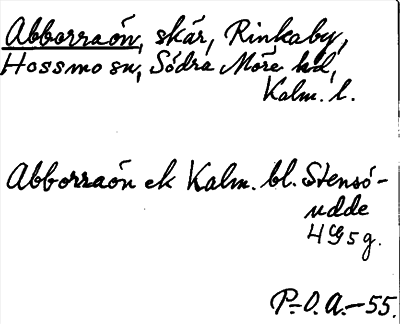 Abborraón, skär, Rinkaby,
Hossmo sn, Södra Möre hd,
Kalm. l.
Abborraón ek Kalm. bl. Stensö-
udde
4G5g.
P.-O. A. - 55.